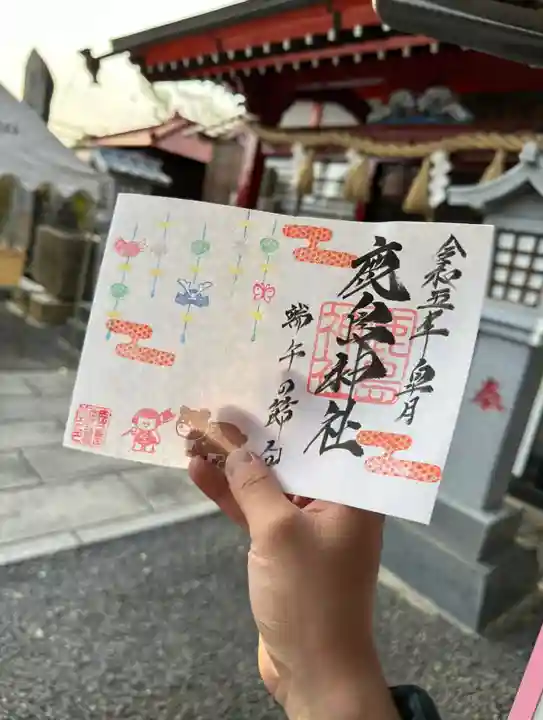 令和五年 皐月
鹿島神社
端午の節句
奉